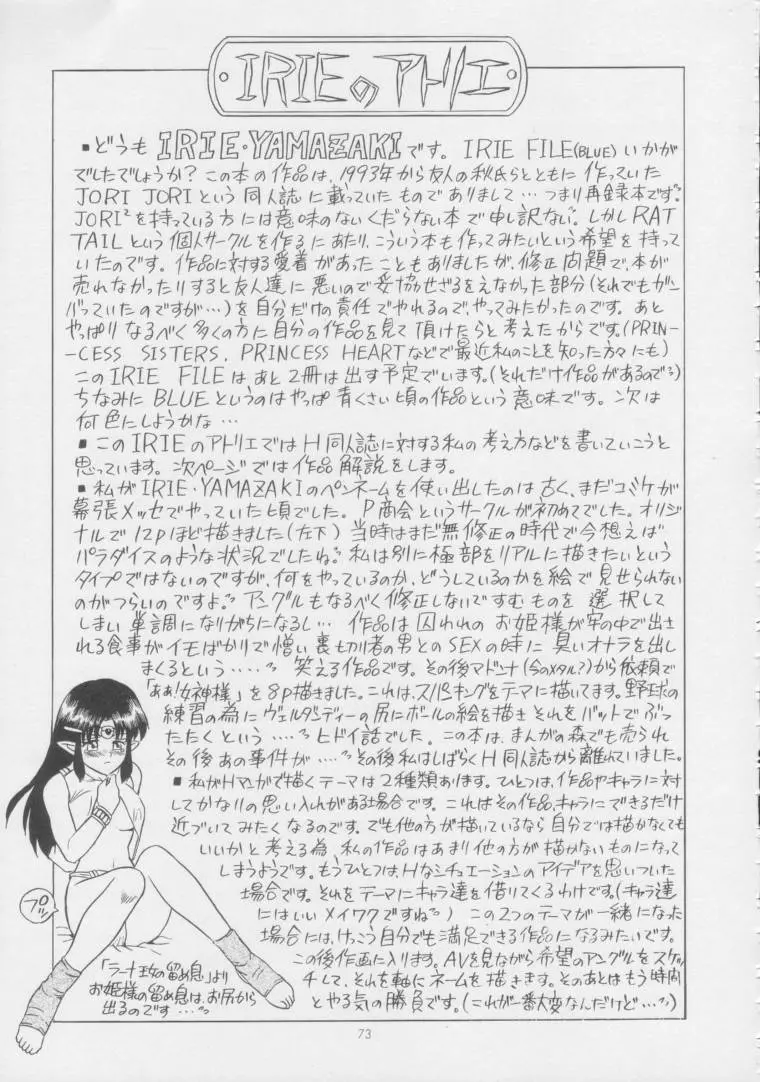 IRIEのアトリエ
■どうも IRIE・YAMAZAKIです。IRIE FILE(BLUE)いかが
でしたでしょうか?この本の作品は、1993年から友人の秋氏らとともに作っていた
JORI JORIという同人誌に載っていたものでありまして…つまり再録本です。
JORI²を持っている方には意味のないくだらない本で申し訳ない。しかしRAT
TAILという個人サークルを作るにあたり、こういう本も作ってみたいという希望を持って
いたのです。作品に対する愛着があったこともありましたが、修正問題で、本が
売れなかったりすると友人達に悪いので妥協せざるをえなかった部分(それでもガン
バっていたのですが…)を自分だけの責任でやれるので、やってみたかったのです。あと
やっぱりなるべく多くの方に自分の作品を見て頂けたらと考えたからです。(PRIN-
-CESS SISTERS, PRINCESS HEARTなどで最近私のことを知った方々にも)
このIRIE FILEはあと2冊は出す予定でいます。(それだけ作品があるので)
ちなみにBLUEというのはやっぱ青くさい頃の作品という意味です。次は
何色にしようかな…
■このIRIEのアトリエではH同人誌に対する私の考え方などを書いていこうと
思っています。次ページでは作品解説をします。
■私がIRIE・YAMAZAKIのペンネームを使い出したのは古く、まだコミケが
幕張メッセでやっていた頃でした。P商会というサークルが初めてでした。オリジ
ナルで12pほど描きました(左下)当時はまだ無修正の時代で今想えば
パラダイスのような状況でしたね。私は別に極部をリアルに描きたいという
タイプではないのですが、何をやっているのか、どうしているのかを絵で見せられない
のがつらいのですよ。アングルもなるべく修正しないですむものを選択して
しまい単調になりがちになるし…作品は囚われのお姫様が牢の中で出さ
れる食事がイモばかりで憎い裏切り者の男とのSEXの時に臭いオナラを出し
まくるという……笑える作品です。その後マドンナ(今のメタル?)から依頼で
「ああ!女神様」を8p描きました。これは、スパンキングをテーマに描いてます。野球の
練習の為にヴェルダンディーの尻にボールの絵を描きそれをバットでぶっ
たたくという……ヒドイ話でした。この本は、まんがの森でも売られ
その後あの事件が……その後私はしばらくH同人誌から離れていました。
■私がHマンガで描くテーマは2種類あります。ひとつは、作品やキャラに対
してかなりの思い入れがある場合です。これはその作品、キャラにできるだけ
近づいてみたくなるのです。でも他の方が描いているなら自分では描かなくても
いいかと考える為、私の作品はあまり他の方が描かないものになって
しまうようです。もうひとつは、Hなシチュエーションのアイデアを思いついた
場合です。それをテーマにキャラ達を借りてくるわけです。(キャラ達
にはいいメイワクですね)この2つのテーマが一緒になった
場合には、けっこう自分でも満足できる作品になるみたいです。
この後作画に入ります。AVを見ながら希望のアングルをスケッ
チして、それを軸にネームを描きます。そのあとはもう時間
とやる気の勝負です。(これが一番大変なんだけど…)
プッ
「ラーナ王女の留め息」より
お姫様の留め息は、お尻から
出るのです…
73